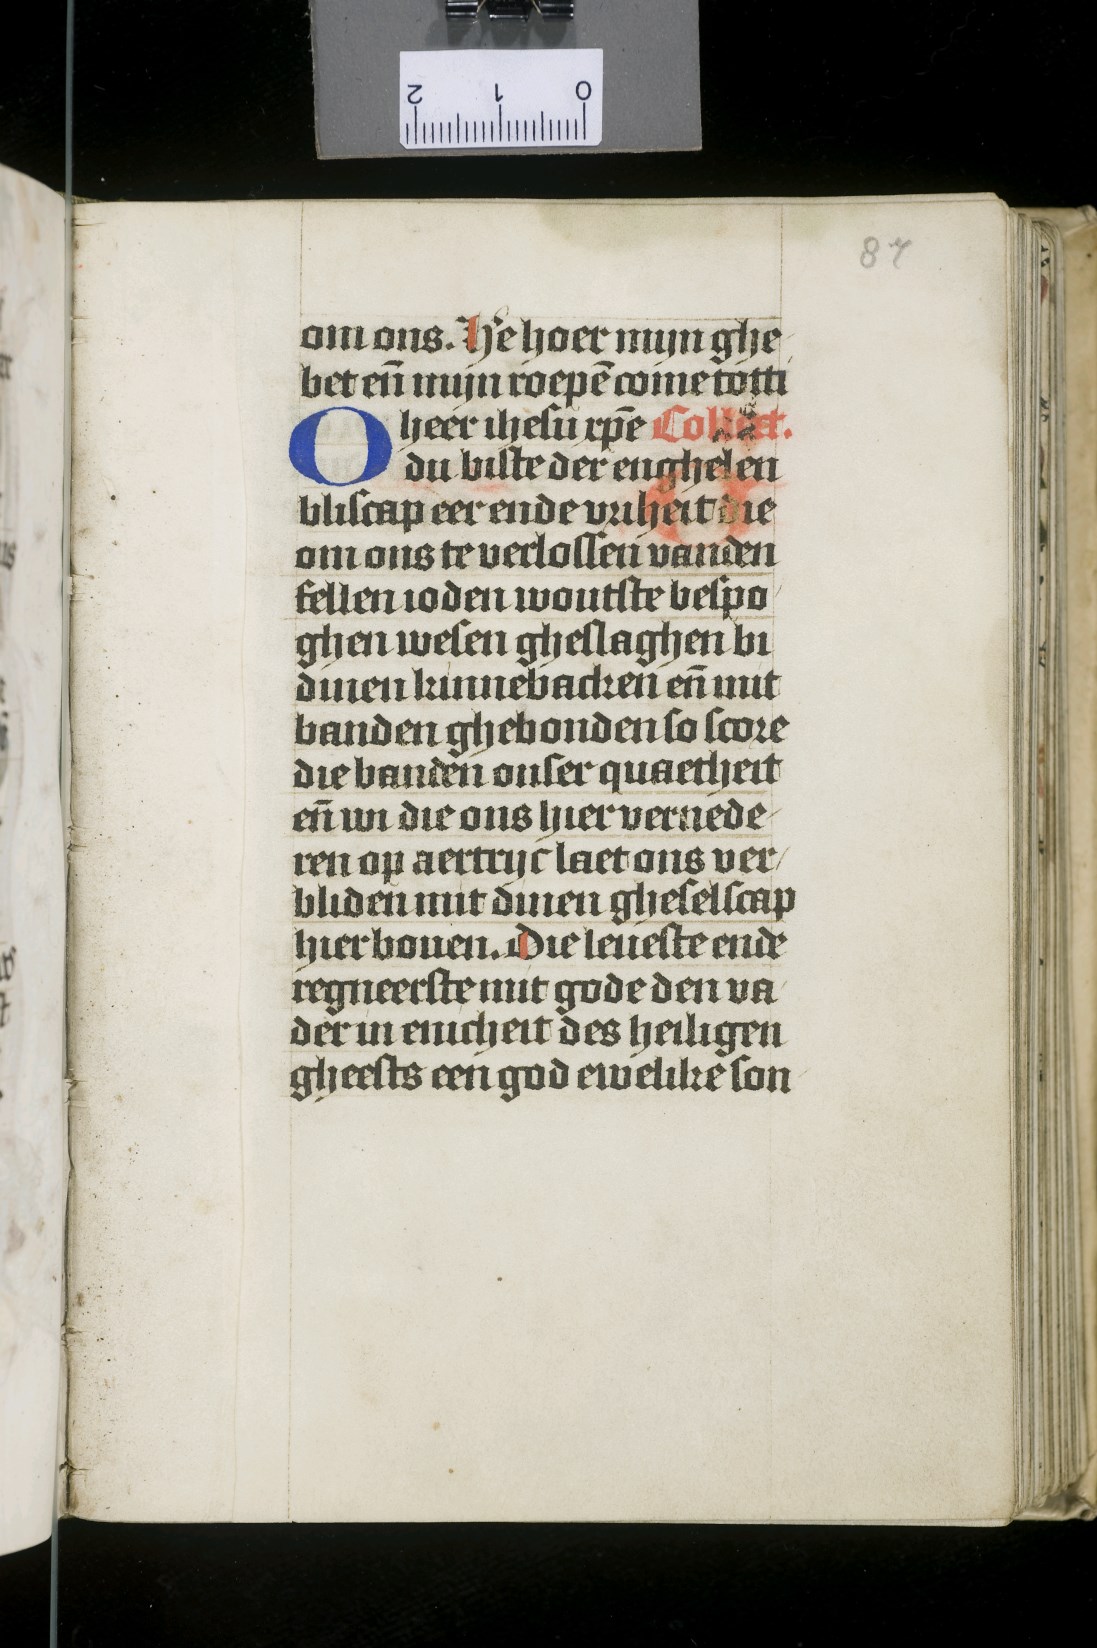 87
om ons. He hoer mijn ghe
bet en̄ mijn roepē come totti
O heer ihesu xp̄e Collect.
du biste der enghelen
bliscap eer ende vriheit die
om ons te verlossen vanden
fellen ioden woutste bespo
ghen wesen gheslaghen bi
dinen kinnebacken en̄ mit
banden ghebonden so score
die banden onser quaetheit
en̄ wi die ons hier vernede
ren op aertrijc laet ons ver
bliden mit dinen gheselscap
hier bouen. Die leueste ende
regneerste mit gode den va
der in enicheit des heiligen
gheests een god ewelike son
2 1 0